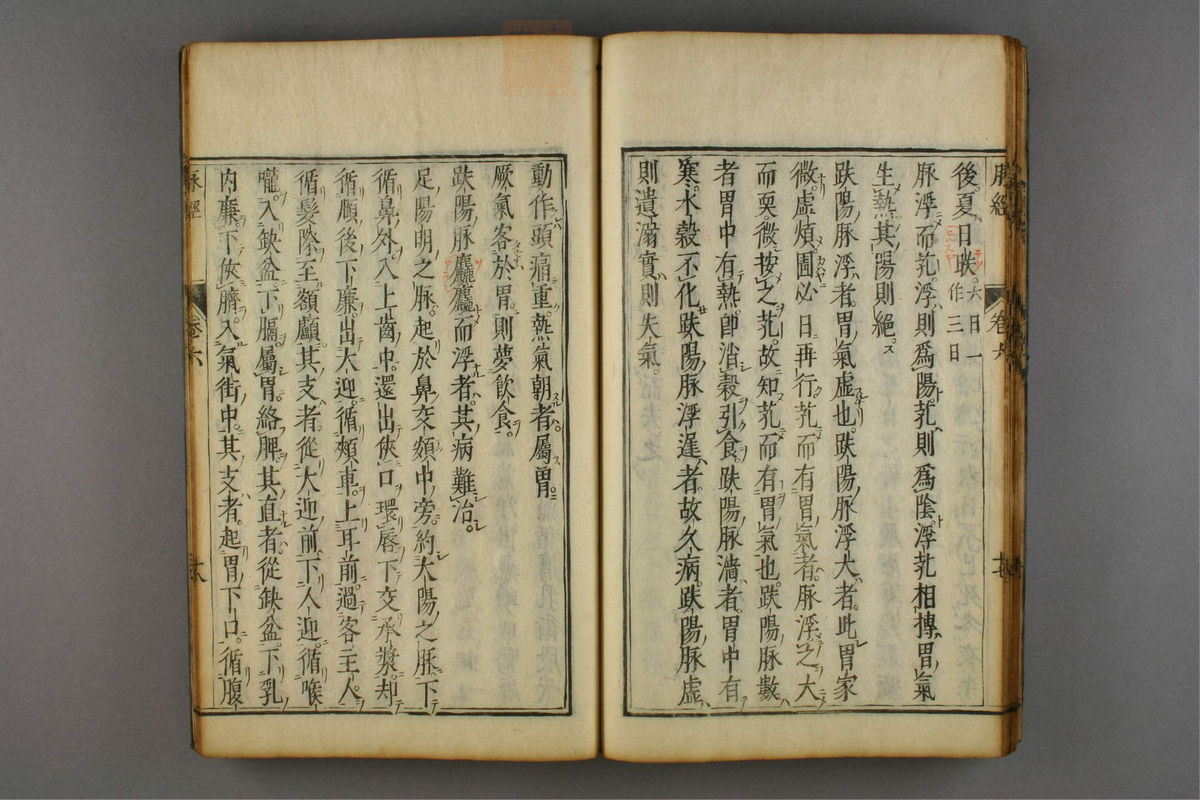 脉經
卷六
後夏日昳六日一作三日
脉浮而芤浮則爲陽芤則爲陰浮芤相摶胃氣
生熱其陽則絕
趺陽脉浮者胃氣虛也趺陽脉浮大者此胃家
微虛煩圊必日再行芤而有胃氣者脉浮之大
而耎微按之芤故知芤而有胃氣也趺陽脉數
者胃中有熱即消穀引食趺陽脉濇者胃中有
寒水穀不化趺陽脉浮遲者故久病趺陽脉虛
則遺溺實則失氣
動作頭痛重熱氣朝者屬胃
厥氣客於胃則夢飲食
趺陽脉麤麤而浮者其病難治
足陽明之脉起於鼻交頞中旁約大陽之脉下
循鼻外入上齒中還出俠口環唇下交承漿却
循頤後下廉出大迎循頰車上耳前過客主人
循髮際至額顱其支者從大迎前下人迎循喉
嚨入缺盆下膈屬胃絡脾其直者從缺盆下乳
内廉下俠臍入氣街中其支者起胃下口循腹
脉經
卷六
十八